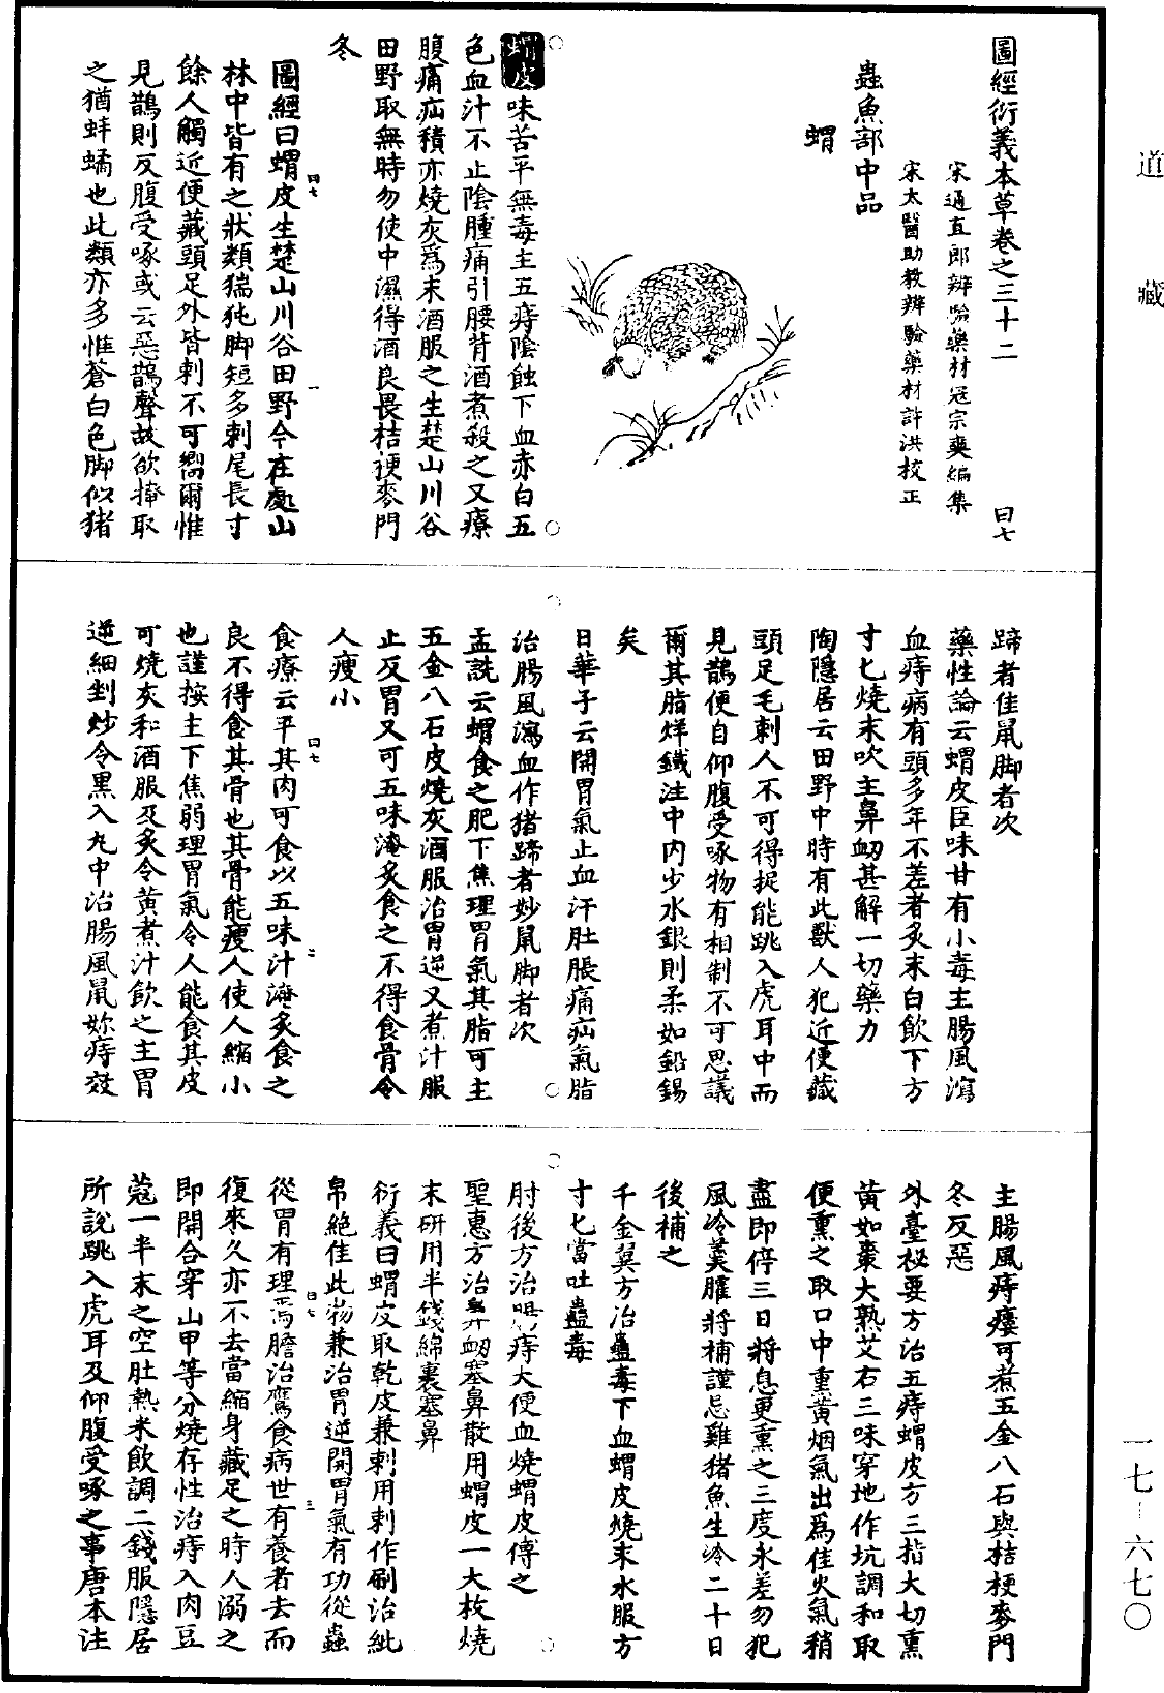 道藏
圖經衍義本草卷之三十二
曰七
宋通直郎辨驗藥材寇宗奭編集
宋太醫助教辨驗藥材許洪校正
蟲魚部中品
蝟
蝟皮味苦平無毒主五痔陰蝕下血赤白五
色血汁不止陰腫痛引腰背酒煮殺之又療
腹痛疝積亦燒灰爲末酒服之生楚山川谷
田野取無時勿使中濕得酒良畏桔梗麥門
冬
圖經曰蝟皮生楚山川谷田野今在處山
林中皆有之狀類猯㹠脚短多刺尾長寸
餘人觸近便藏頭足外皆刺不可嚮爾惟
見鵲則反腹受啄或云惡鵲聲故欲掩取
之猶蚌蟜也此類亦多惟蒼白色脚似猪
曰七
一
蹄者佳鼠脚者次
藥性論云蝟皮臣味甘有小毒主腸風瀉
血痔病有頭多年不差者炙末白飲下方
寸匕燒末吹主鼻衂甚解一切藥力
陶隱居云田野中時有此獸人犯近便藏
頭足毛刺人不可得捉能跳入虎耳中而
見鵲便自仰腹受啄物有相制不可思議
爾其脂烊鐵注中内少水銀則柔如鉛錫
矣
日華子云開胃氣止血汗肚脹痛疝氣脂
治腸風瀉血作猪蹄者妙鼠脚者次
孟詵云蝟食之肥下焦理胃氣其脂可主
五金八石皮燒灰酒服治胃逆又煮汁服
止反胃又可五味淹炙食之不得食骨令
人瘦小
食療云平其肉可食以五味汁淹炙食之
良不得食其骨也其骨能瘦人使人縮小
也謹按主下焦弱理胃氣令人能食其皮
可燒灰和酒服及炙令黄煮汁飲之主胃
逆細剉炒令黑入丸中治腸風鼠妳痔效
曰七
二
主腸風痔瘻可煮五金八石與桔梗麥門
冬反惡
外臺秘要方治五痔蝟皮方三指大切熏
黄如棗大熟艾右三味穿地作坑調和取
便熏之取口中熏黄烟氣出爲佳火氣稍
盡即停三日將息更熏之三度永差勿犯
風冷羹臛將補謹忌雞猪魚生冷二十日
後補之
千金翼方治蠱毒下血蝟皮燒末水服方
寸匕當吐蠱毒
肘後方治腸痔大便血燒蝟皮傅之
聖惠方治鼻衂塞鼻散用蝟皮一大枚燒
末研用半錢綿裹塞鼻
衍義曰蝟皮取乾皮兼刺用刺作刷治紕
帛絶佳此物兼治胃逆開胃氣有功從蟲
從胃有理焉膽治鷹食病世有養者去而
復來久亦不去當縮身藏足之時人溺之
即開合穿山甲等分燒存性治痔入肉豆
蔻一半末之空肚熱米飲調二錢服隱居
所說跳入虎耳及仰腹受啄之事唐本注
曰七
三
一七—六七〇